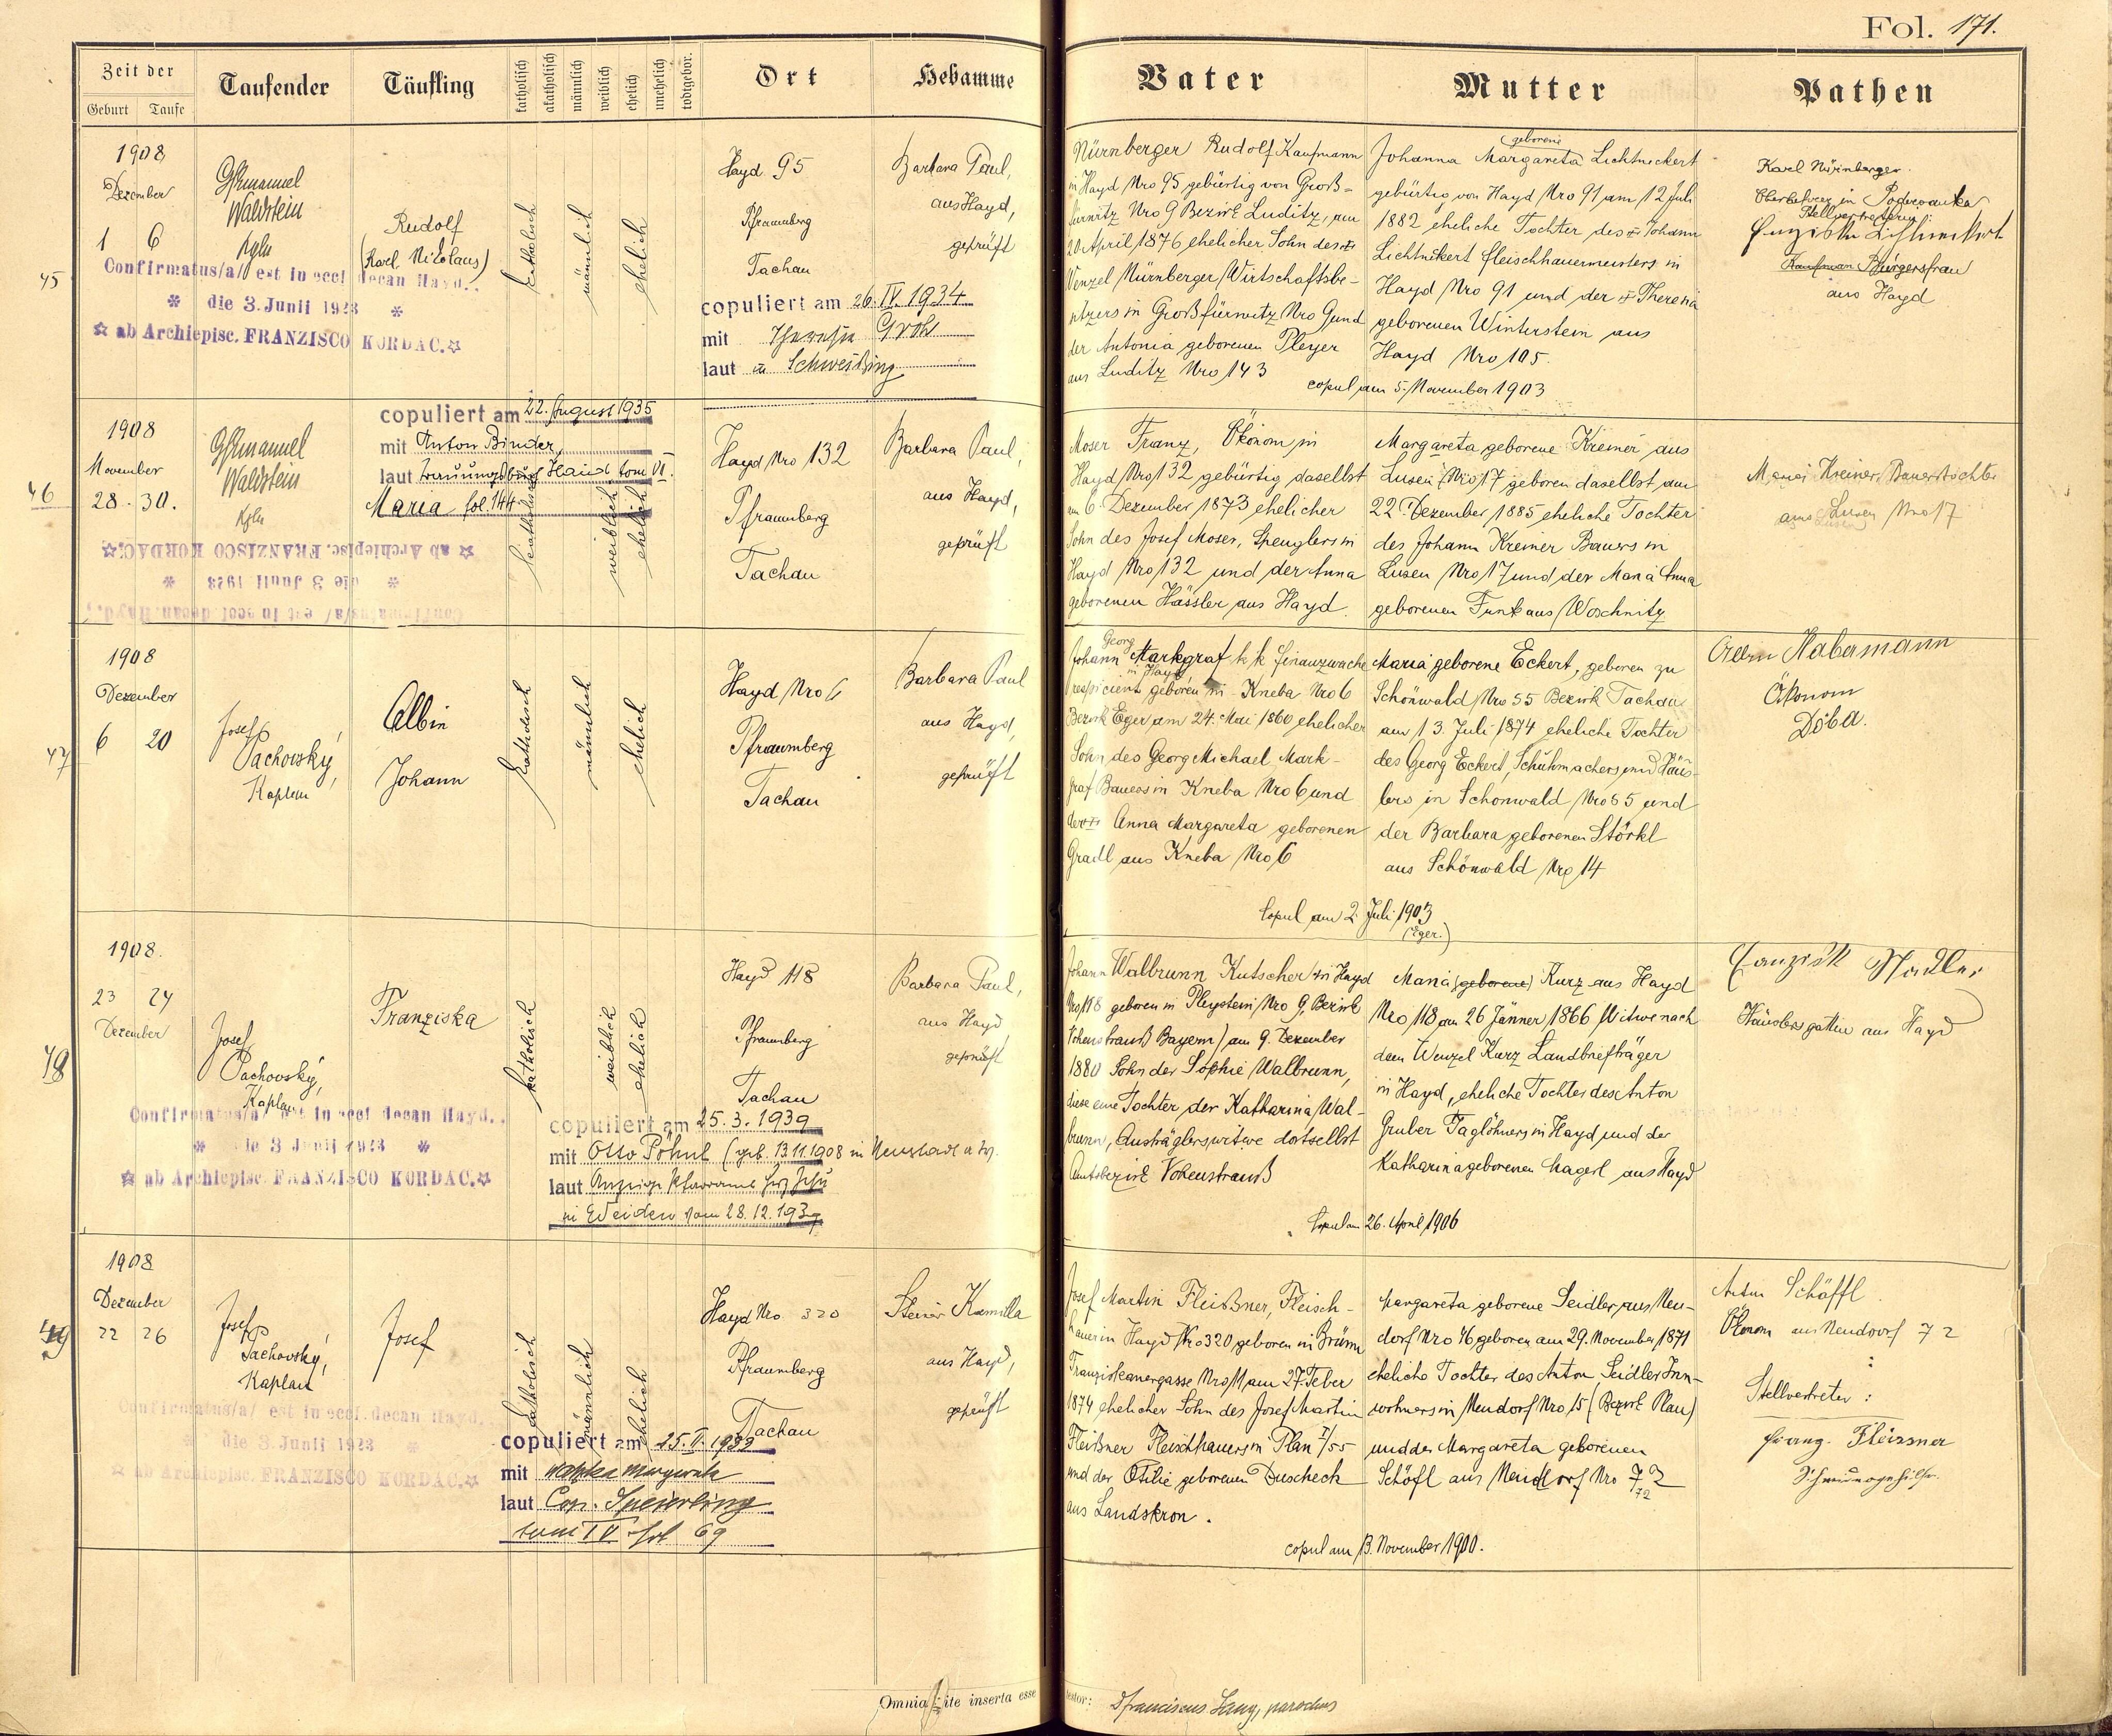 Fol. 171.
Zeit der
Geburt Taufe
Taufender
Täufling
katholisch
akatholisch
männlich
weiblich
ehelich
unehelich
todtgebor.
Ort
Hebamme
Vater
Mutter
Pathen
45
1908
Dezember
1 6
Waldstein
Rudolf
(Karl Nikolaus)
katholisch
männlich
ehelich
Hayd 95
Pfraumberg
Tachau
Barbara Paul,
aus Hayd,
geprüft
Confirmatus/a/ est in eccl. decan Hayd.
die 3. Junii 1923
ab Archiepisc. FRANZISCO KORDAC.
copuliert am 26. IV. 1934
mit Theresia Grohs
laut in Schweißing
Nürnberger Rudolf Kaufmann
in Hayd Nro 95 gebürtig von Groß-
fürwitz Nro 9 Bezirk Luditz, am
20 April 1876 ehelicher Sohn des
Wenzel Nürnberger Wirtschaftsbe-
sitzers in Großfürwitz Nro 9 und
der Antonia geborenen Pleyer
aus Luditz Nro 143
geborene
Johanna Margareta Lichtneckert
gebürtig von Hayd Nro 91 am 12 Juli
1882 eheliche Tochter des Johann
Lichtnekert Fleischhauermeisters in
Hayd Nro 91 und der Theresia
geborenen Winterstein aus
Hayd Nro 105.
copul am 5. November 1903
Karl Nürnberger
Stellvertreterin:
Kaufman Bürgersfrau
aus Hayd
46
1908
November
28. 30.
Waldstein
copuliert am 22. August 1935
mit Anton Binder,
laut Trauungsbuch Haid tom VI.
Maria fol. 144
katholisch
weiblich
ehelich
Hayd Nro 132
Pfraumberg
Tachau
Barbara Paul,
aus Hayd,
geprüft
Confirmatus/a/ est in eccl. decan Hayd.
die 3 Junii 1923
ab Archiepisc. FRANZISCO KORDAC.
Moser Franz, Ökonom in
Hayd Nro 132 gebürtig daselbst
am 6. Dezember 1873 ehelicher
Sohn des Josef Moser, Spenglers in
Hayd Nro 132 und der Anna
geborenen Hässler aus Hayd
Margareta geborene Kreiner aus
Lusen Nro 17 geboren daselbst am
22. Dezember 1885 eheliche Tochter
des Johann Kreiner Bauers in
Lusen Nro 17 und der Maria Anna
geborenen Funk aus Woschnitz
Kreiner Bauerstochter
aus Lusen Nro 17
47
1908
Dezember
6 20
Josef
Pachovský,
Kaplan
Albin
Johann
katholisch
männlich
ehelich
Hayd Nro 6
Pfraumberg
Tachau
Barbara Paul
aus Hayd,
geprüft
Georg
Johann Markgraf k k Finanzwache
in Hayd
respicient geboren in Kneba Nro 6
Bezirk Eger am 24. Mai 1860 ehelicher
Sohn des Georg Michael Mark-
graf Bauers in Kneba Nro 6 und
der Anna Margareta geborenen
Gradl aus Kneba Nro 6
Maria geborene Eckert, geboren zu
Schönwald Nro 55 Bezirk Tachau
am 13. Juli 1874 eheliche Tochter
des Georg Eckert, Schuhmachers und Häus-
lers in Schönwald Nro 55 und
der Barbara geborenen Störkl
aus Schönwald Nro 14
Copul am 2. Juli 1903
(Eger.)
Habermann
Ökonom
48
1908.
23 24
Dezember
Josef
Pachovský,
Kaplan
Franziska
katholisch
weiblich
ehelich
Hayd 118
Pfraumberg
Tachau
Barbara Paul,
aus Hayd
geprüft
Confirmatus/a/ est in eccl decan Hayd.
die 3 Junii 1923
ab Archiepisc. FRANZISCO KORDAC.
copuliert am 25. 3. 1939
mit Otto Pöhnl (geb. 13.11.1908 in Neustadt
laut Anzeige Pfarramt Herz Jesu
in Weiden vom 28.12.1939
Johann Walbrunn Kutscher in Hayd
Nro 118 geboren in Pleystein Nro 9, Bezirk
Vohenstrauß Bayern) am 9. Dezember
1880 Sohn der Sophie Walbrunn,
diese eine Tochter der Katharina Wal-
brunn, Austräglerswitwe dortselbst
Amtsbezirk Vohenstrauß
Maria (geborene) Kurz aus Hayd
Nro 118 am 26 Jänner 1866 Witwe nach
dem Wenzel Kurz Landbriefträger
in Hayd, eheliche Tochter des Anton
Gruber Taglöhners in Hayd und der
Katharina geborenen Hagerl aus Hayd
Copul am 26. April 1906
Häuslersgattin aus Hayd
49
1908
Dezember
22 26
Josef
Pachovský,
Kaplan
Josef
katholisch
männlich
ehelich
Hayd Nro 320
Pfraumberg
Tachau
Steiner Kamilla
aus Hayd,
geprüft
Confirmatus/a/ est in eccl. decan Hayd.
die 3. Junii 1923
ab Archiepisc. FRANZISCO KORDAC.
copuliert am
mit Margareta
laut Cop.
tom IV fol 69
Josef Martin Fleißner, Fleisch-
hauer in Hayd Nro 320 geboren in Brünn
Franziskanergasse Nro 11 am 27. Feber
1874 ehelicher Sohn des Josef Martin
Fleißner Fleischhauers in Plan I/55
und der Otilie geborenen Duscheck
aus Landskron.
Margareta geborene Seidler, aus Neu-
dorf Nro 46 geboren am 29. November 1871
eheliche Tochter des Anton Seidler Inn-
wohners in Neudorf Nro 15 (Bezirk Plan)
und der Margareta geborenen
Schöfl aus Neudorf Nro 72
72
copul am 13. November 1900.
Anton Schäffl
Ökonom aus Neudorf 72
Stellvertreter:
Franz Fleissner
Omnia rite inserta esse testor:
Franciscus Lang, parochus